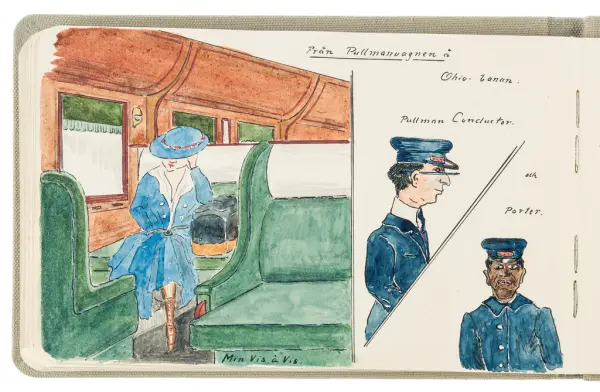 Från Pullmanvagnen å
Ohio-banan.
Pullman Conductor.
och
Porter.
Min Vis à Vis.